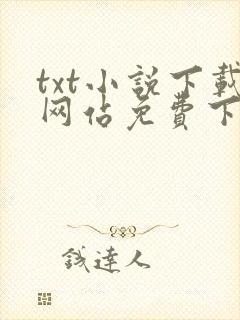 txt小説下載
网佔免費下
錢達人